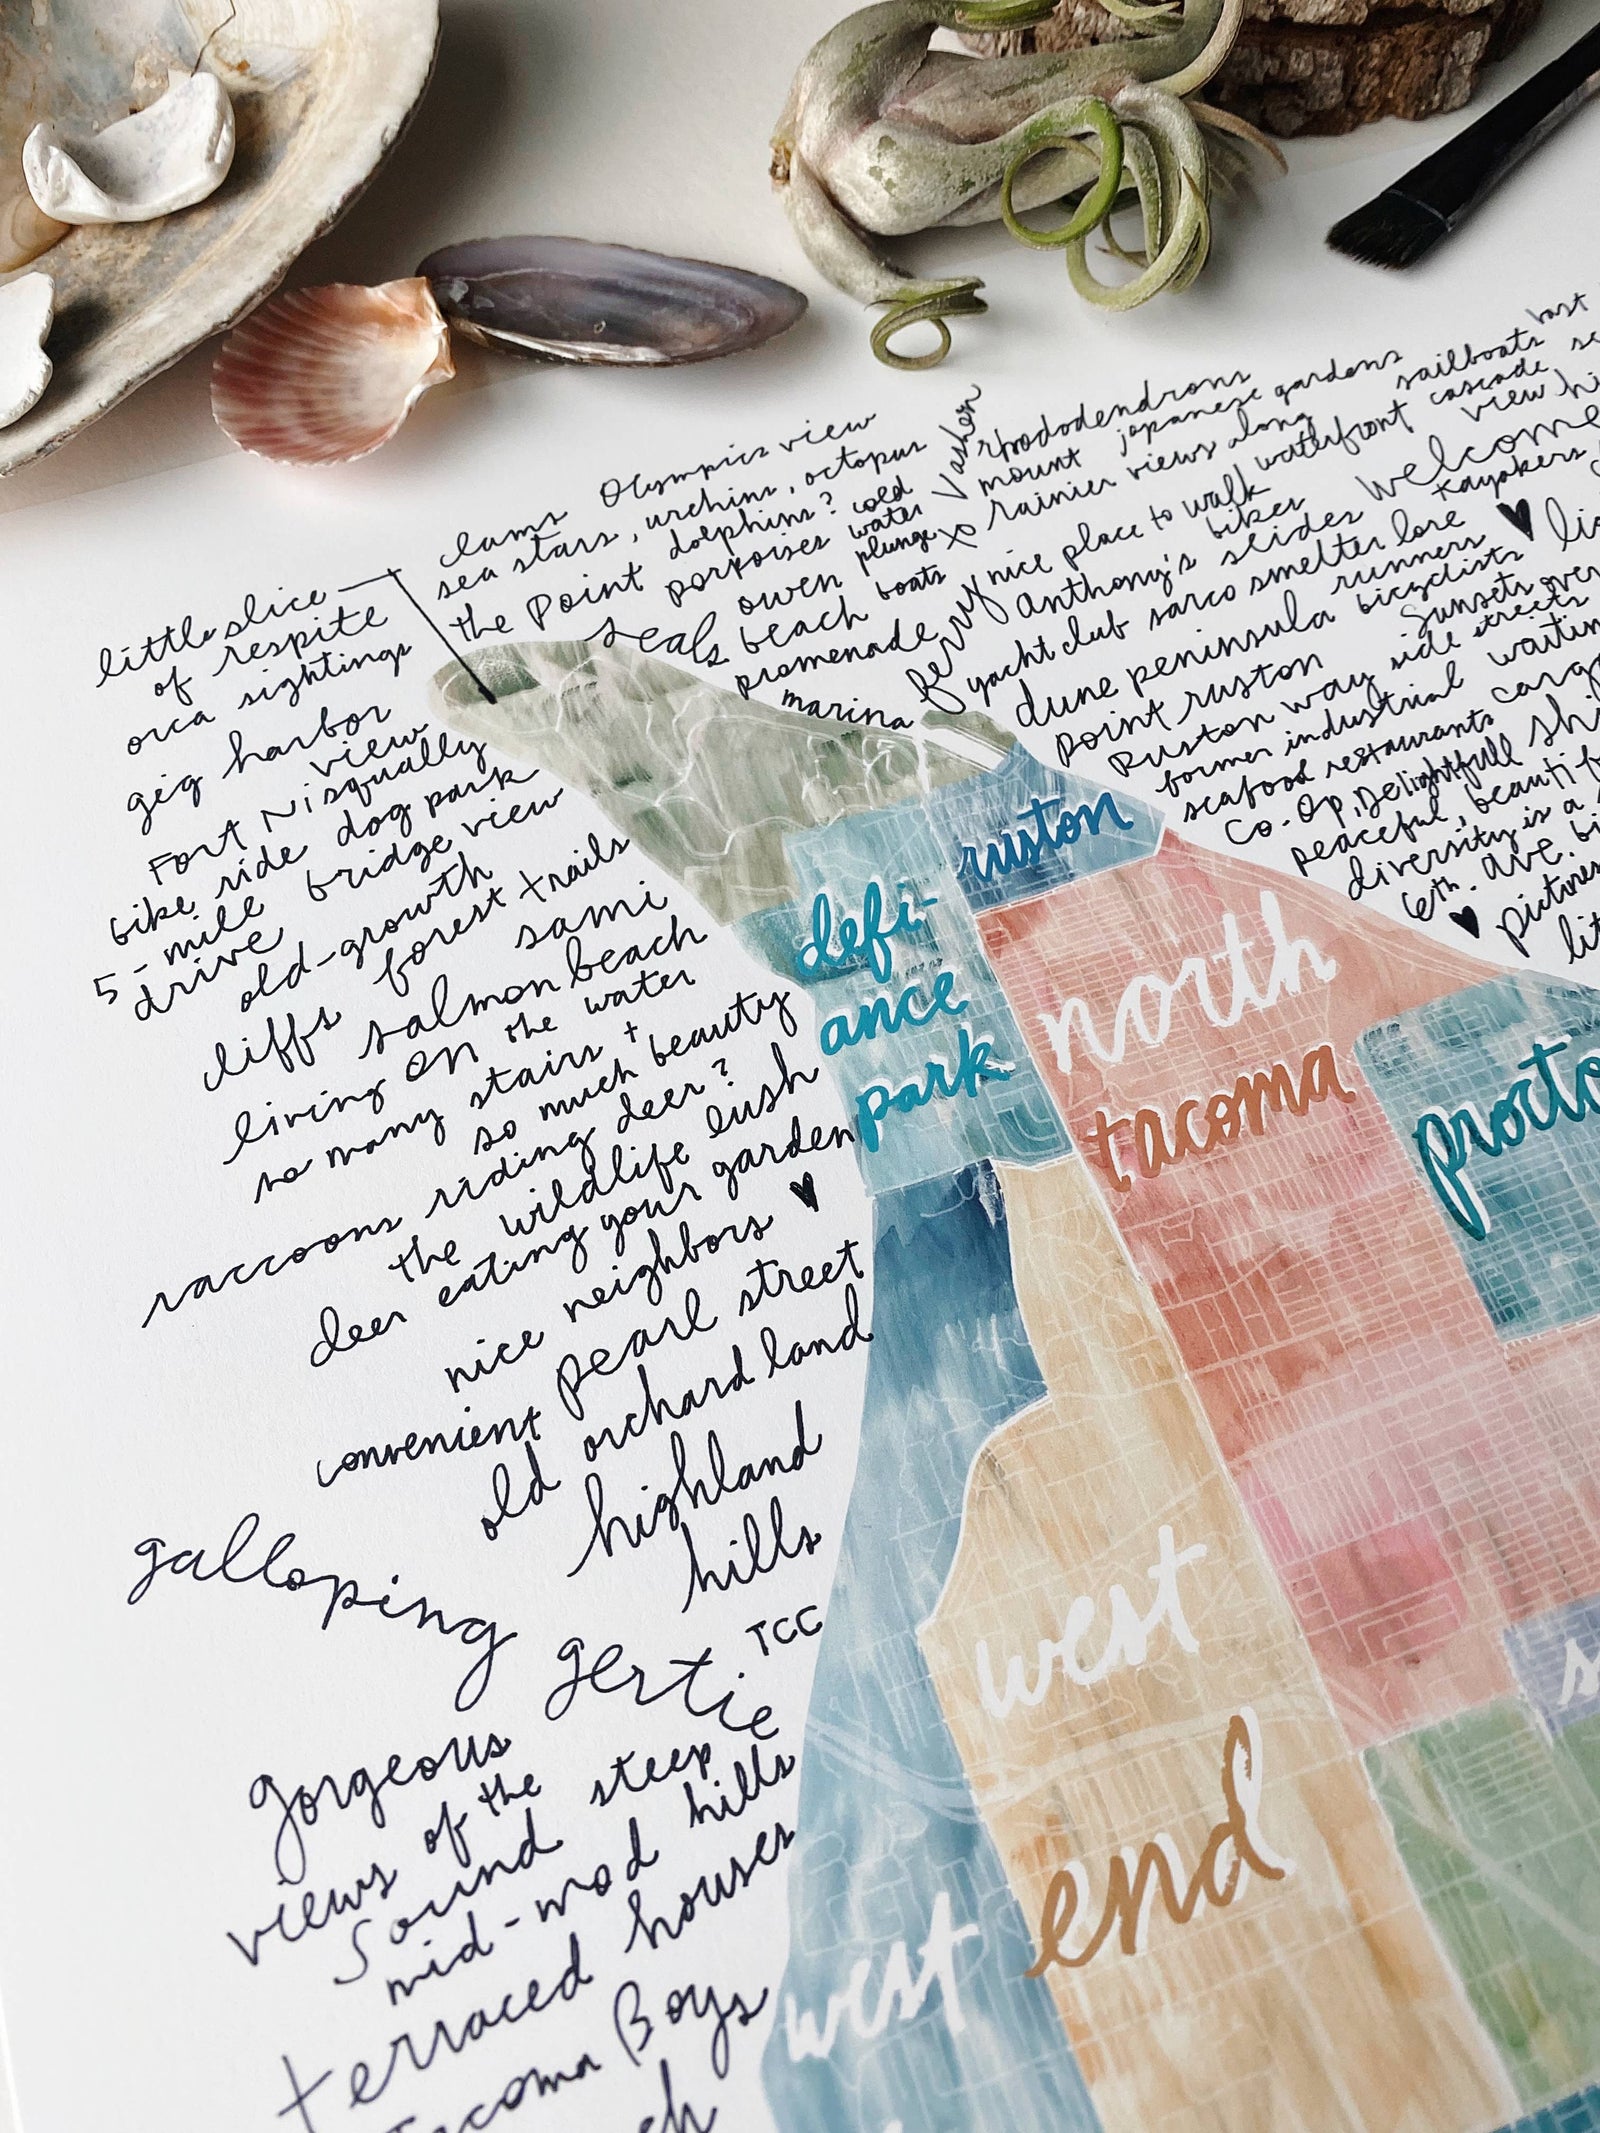 little slice
of respite
orca sightings
gig harbor
view
Fort Nisqually
bike ride dog park
5-mile bridge view
drive
old-growth
cliffs forest trails
sami
salmon beach
living on the water
so many stairs +
so much beauty
raccoons riding deer?
the wildlife lush
deer eating your garden
nice neighbors ♥
convenient pearl street
old orchard land
highland
hills
TCC
galloping gertie
gorgeous
views of the
Sound steep
mid-mod hills
terraced houses
Tacoma Boys
clams Olympics view
sea stars, urchins, octopus
the Point dolphins?
porpoises
cold
water
plunge
Vashon
seals owen
beach boats
promenade
marina
ferry
rhododendrons
mount japanese gardens
rainier views along
waterfront
sailboats
cascade
nice place to walk
bikes
view
Anthony's slides welcome
yacht club asarco smelter lore kayakers
dune peninsula runners ♥
point ruston bicyclists
Ruston way sunsets over
side streets
former industrial waiting
seafood restaurants
Co-Op, Delightfull
peaceful,
diversity is a
6th. Ave.
♥
ruston
defi-
ance
park
north
tacoma
west
end
west